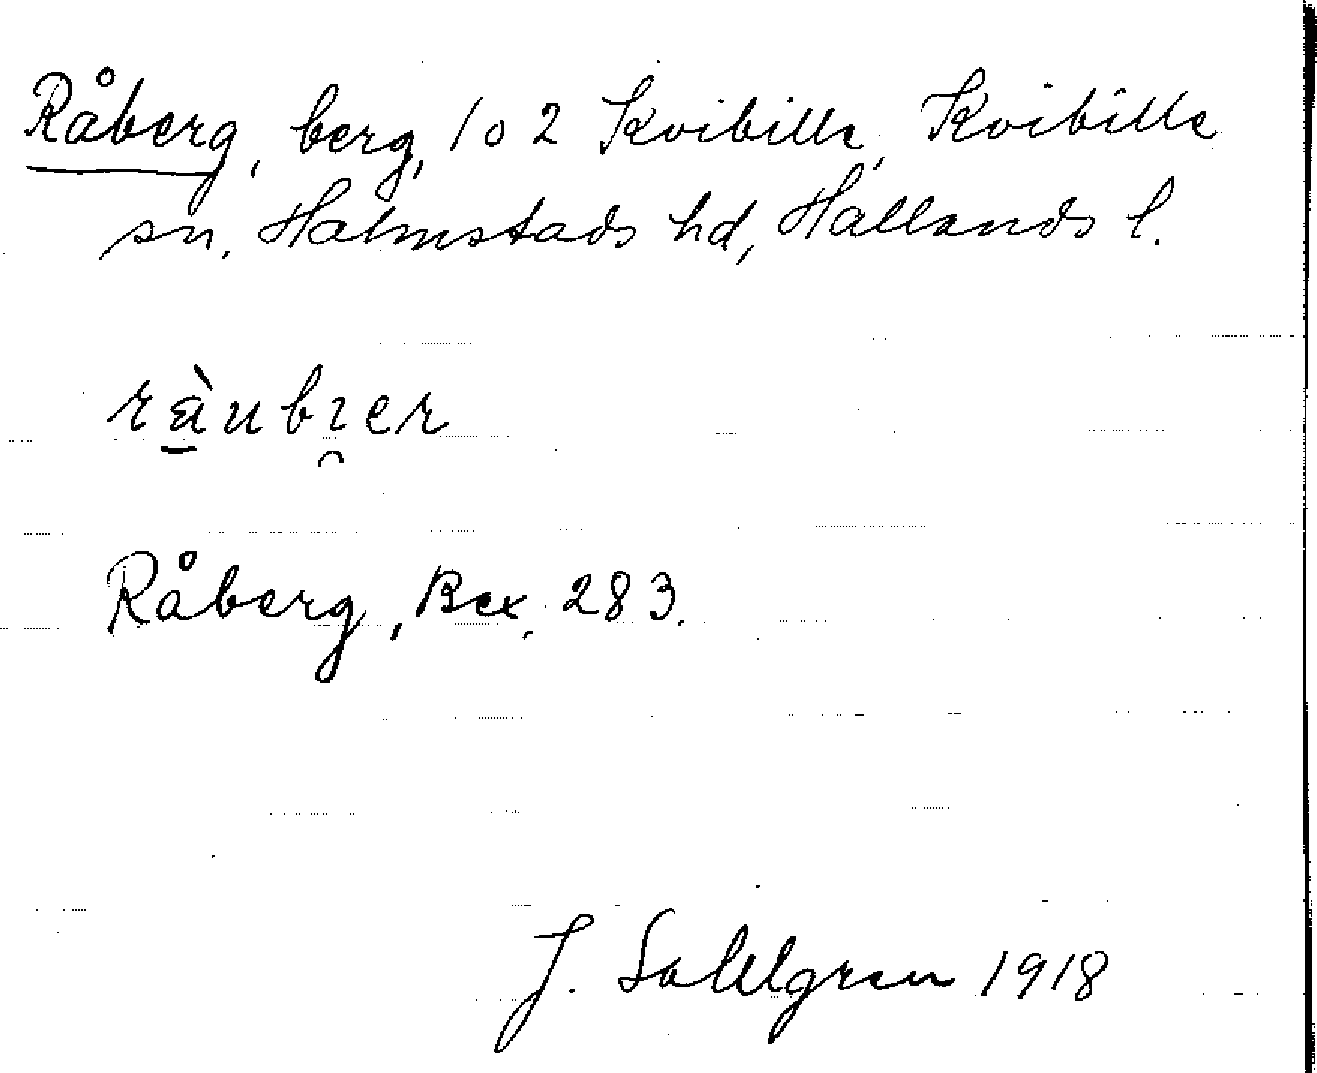 Råberg, berg, 1 o 2 Kvibille, Kvibille
sn. Halmstads hd, Hallands l.
ràubı̯er
Råberg, Bex. 283.
J. Sahlgren 1918